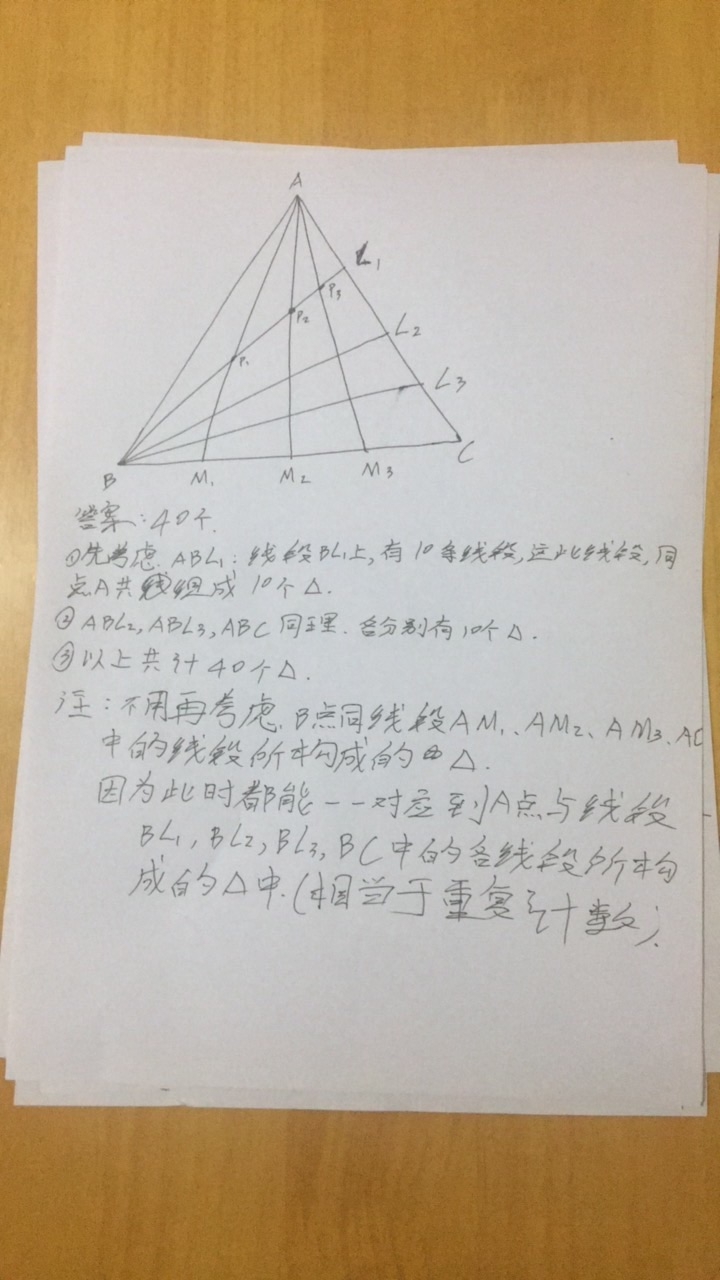 A
L1
P3
P2
L2
P1
L3
B
M1
M2
M3
C
答案:40个.
①先考虑 ABL1:线段BL1上,有10条线段,这些线段,同
点A共组成10个△.
②ABL2,ABL3,ABC同理.各分别有10个△.
③以上共计40个△.
注:不用再考虑B点同线段AM1、AM2、AM3、AC
中的线段所构成的△.
因为此时都能一一对应到A点与线段
BL1,BL2,BL3,BC中的各线段所构
成的△中.(相当于重复计数).